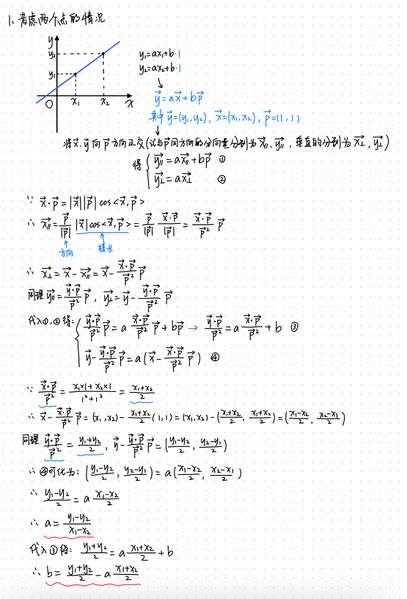 1. 考虑两个点的情况
y
y₂
y₁
O x₁ x₂ x
y₁=ax₁+b·1
y₂=ax₂+b·1
y⃗=ax⃗+bp⃗
其中 y⃗=(y₁,y₂), x⃗=(x₁,x₂), p⃗=(1,1)
将x⃗,y⃗向p⃗方向正交(设与p⃗同方向的分向量分别为x⃗₀,y⃗₀, 垂直的分别为x⃗⊥,y⃗⊥)
得 { y⃗₀=ax⃗₀+bp⃗ ①
y⃗⊥=ax⃗⊥ ②
∵ x⃗·p⃗=|x⃗||p⃗|cos<x⃗,p⃗>
∴ x⃗₀=p⃗/|p⃗| |x⃗|cos<x⃗,p⃗>=p⃗/|p⃗| x⃗·p⃗/|p⃗|=x⃗·p⃗/p⃗² p⃗
方向 模长
∴ x⃗⊥=x⃗-x⃗₀=x⃗-x⃗·p⃗/p⃗² p⃗
同理 y⃗₀=y⃗·p⃗/p⃗² p⃗, y⃗⊥=y⃗-y⃗·p⃗/p⃗² p⃗
代入①,②得: { y⃗·p⃗/p⃗² p⃗=a x⃗·p⃗/p⃗² p⃗+bp⃗ → y⃗·p⃗/p⃗²=a x⃗·p⃗/p⃗²+b ③
y⃗-y⃗·p⃗/p⃗² p⃗=a(x⃗-x⃗·p⃗/p⃗² p⃗) ④
∵ x⃗·p⃗/p⃗²=(x₁×1+x₂×1)/(1²+1²)=(x₁+x₂)/2
∴ x⃗-x⃗·p⃗/p⃗² p⃗=(x₁,x₂)-(x₁+x₂)/2 (1,1)=(x₁,x₂)-((x₁+x₂)/2, (x₁+x₂)/2)=((x₁-x₂)/2, (x₂-x₁)/2)
同理 y⃗·p⃗/p⃗²=(y₁+y₂)/2, y⃗-y⃗·p⃗/p⃗² p⃗=((y₁-y₂)/2, (y₂-y₁)/2)
∴ ④可化为: ((y₁-y₂)/2, (y₂-y₁)/2)=a((x₁-x₂)/2, (x₂-x₁)/2)
∴ (y₁-y₂)/2=a (x₁-x₂)/2
∴ a=(y₁-y₂)/(x₁-x₂)
代入③得: (y₁+y₂)/2=a (x₁+x₂)/2+b
∴ b=(y₁+y₂)/2-a (x₁+x₂)/2